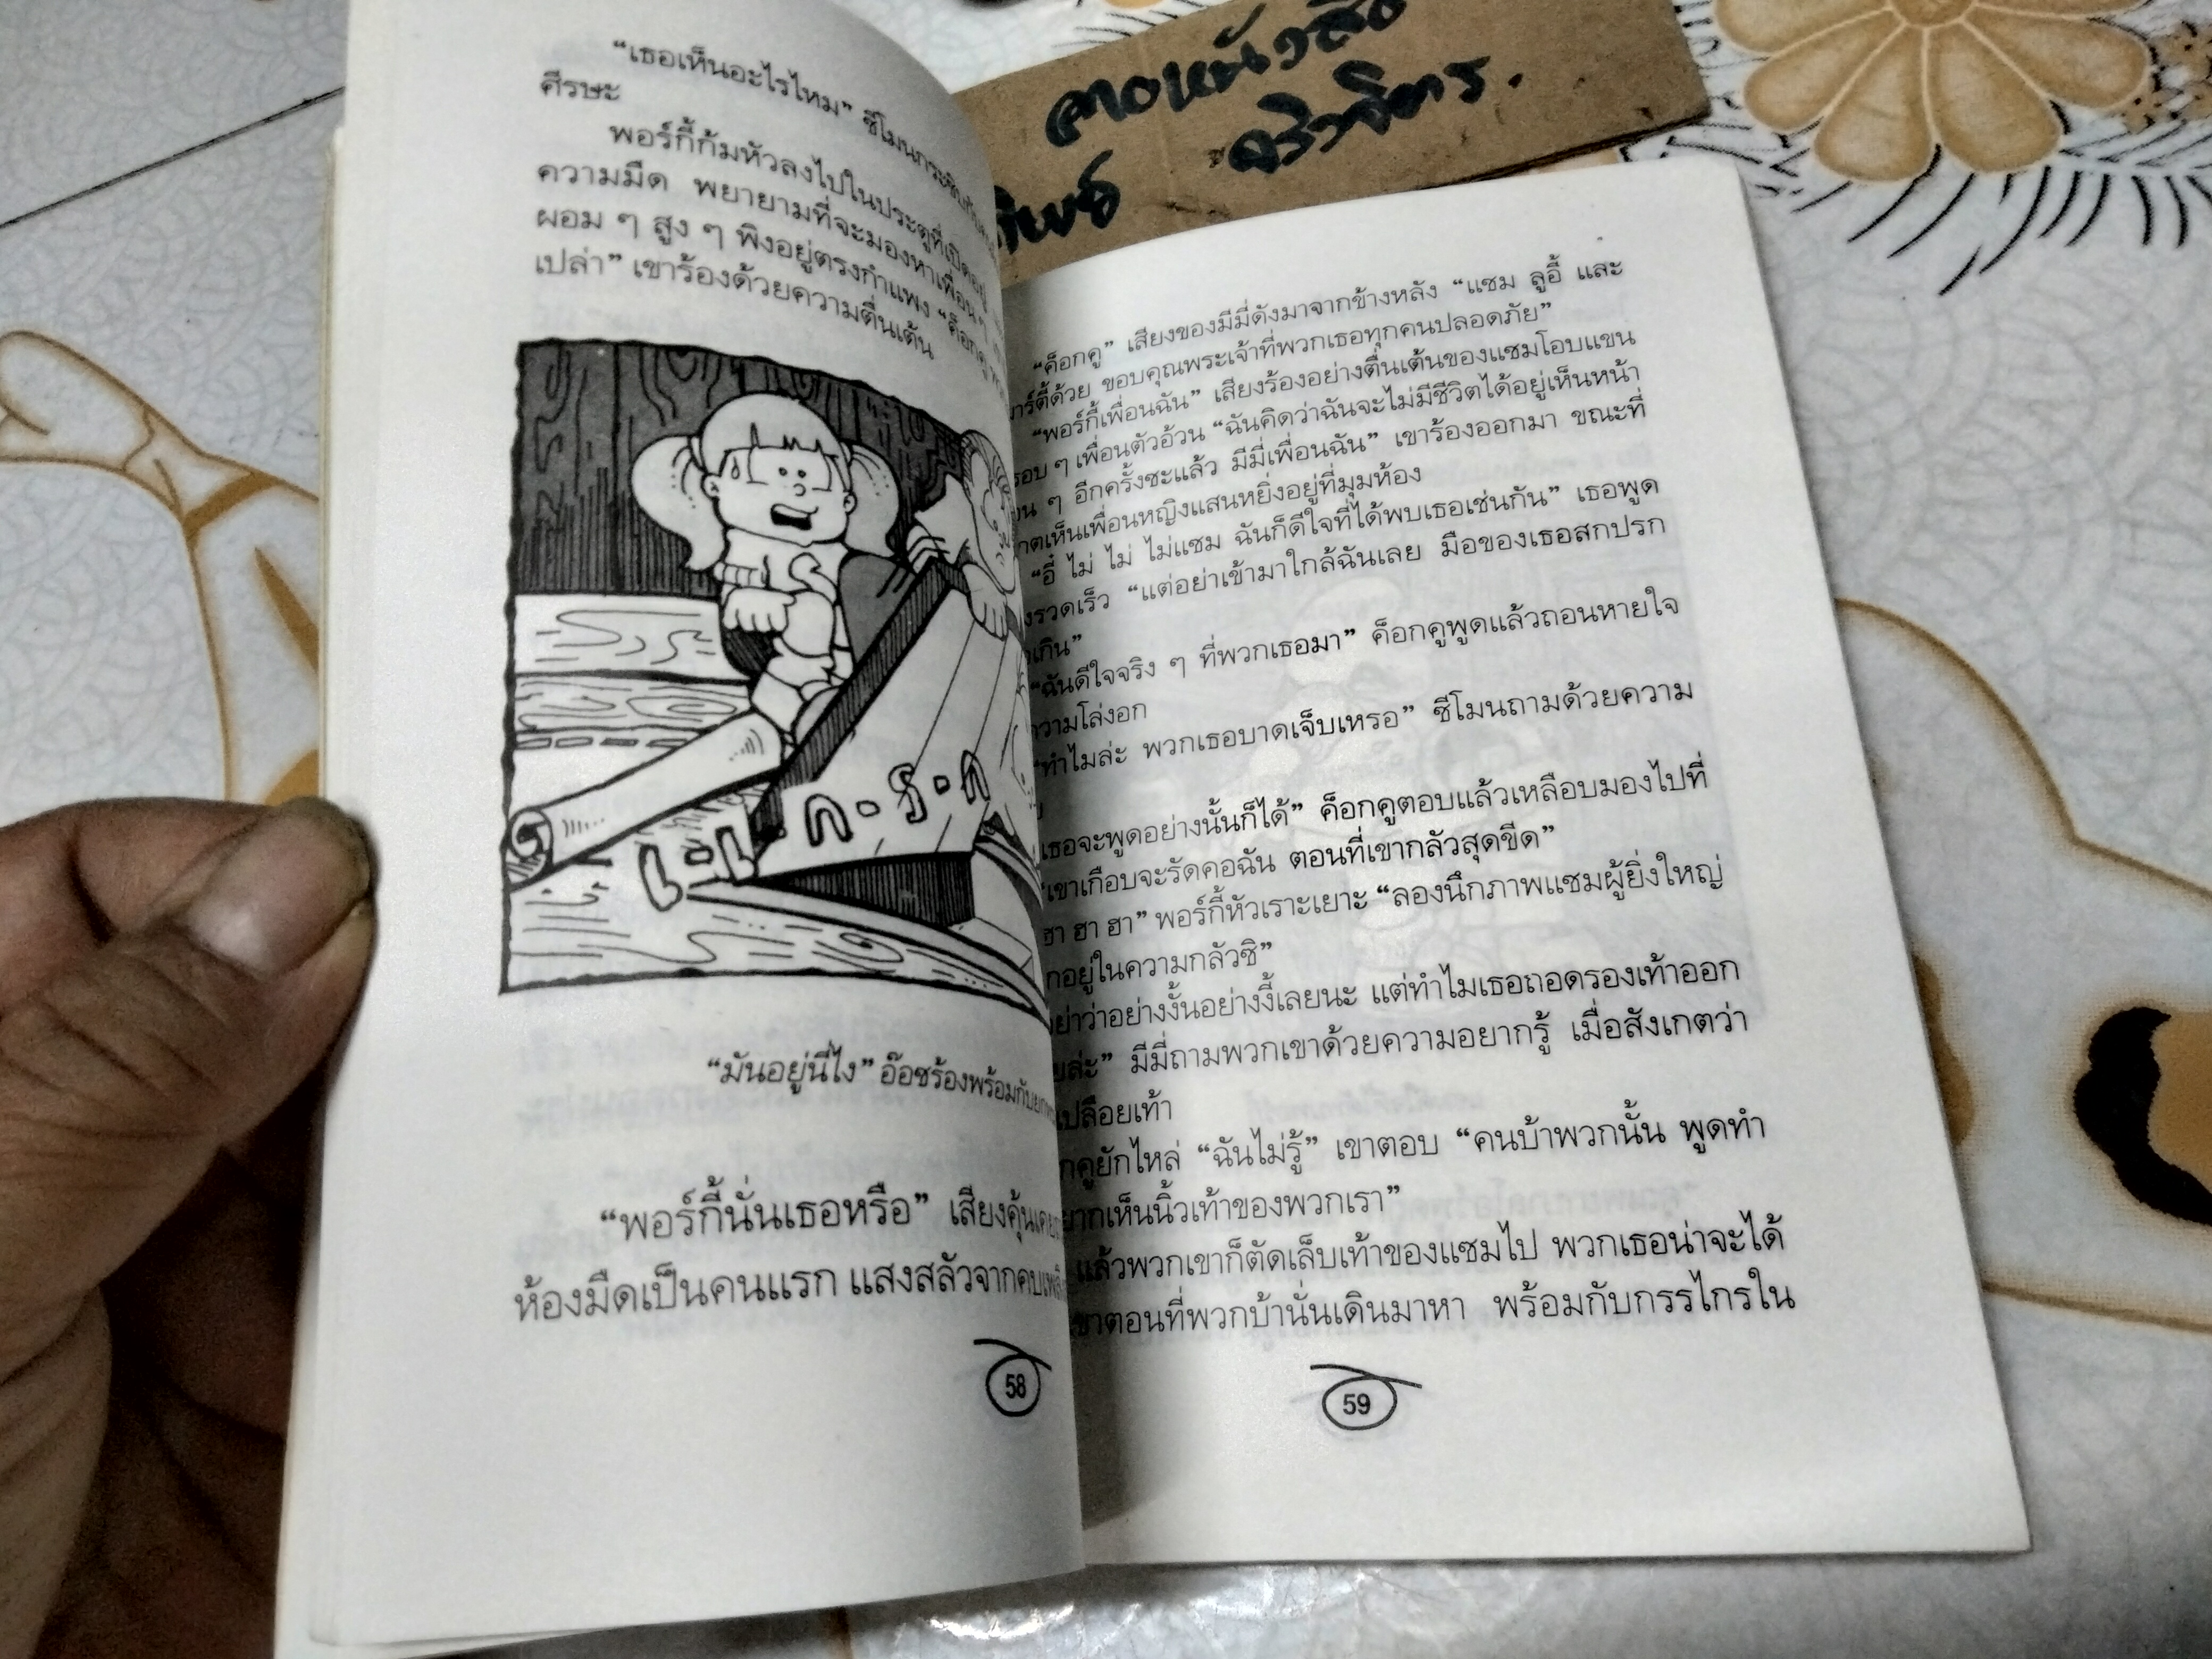 “เธอเห็นอะไรไหม” ซีโมนกระซิบ
ศีรษะ
พอร์กี้ก้มหัวลงไปในประตูที่เปิดอยู่
ความมืด พยายามที่จะมองหาเพื่อน ๆ
ผอม ๆ สูง ๆ พิงอยู่ตรงกำแพง “ค็อกคู
เปล่า” เขาร้องด้วยความตื่นเต้น
“มันอยู่นี่ไง” อ๊อชร้องพร้อมกับยก
“พอร์กี้นั่นเธอหรือ” เสียงคุ้นเคย
ห้องมืดเป็นคนแรก แสงสลัวจากคบเพลิง
58
คาดหนังสือ
ศิริจิตร.
“ค็อกคู” เสียงของมีมี่ดังมาจากข้างหลัง “แซม ลูอี้ และ
ด้วย ขอบคุณพระเจ้าที่พวกเธอทุกคนปลอดภัย”
“พอร์กี้เพื่อนฉัน” เสียงร้องอย่างตื่นเต้นของแซมโอบแขน
รอบ ๆ เพื่อนตัวอ้วน “ฉันคิดว่าฉันจะไม่มีชีวิตได้อยู่เห็นหน้า
ๆ อีกครั้งซะแล้ว มีมี่เพื่อนฉัน” เขาร้องออกมา ขณะที่
เห็นเพื่อนหญิงแสนหยิ่งอยู่ที่มุมห้อง
“อี๋ ไม่ ไม่ ไม่แซม ฉันก็ดีใจที่ได้พบเธอเช่นกัน” เธอพูด
รวดเร็ว “แต่อย่าเข้ามาใกล้ฉันเลย มือของเธอสกปรก
เกิน”
“ฉันดีใจจริง ๆ ที่พวกเธอมา” ค็อกคูพูดแล้วถอนหายใจ
ความโล่งอก
“ทำไมล่ะ พวกเธอบาดเจ็บเหรอ” ซีโมนถามด้วยความ
เธอจะพูดอย่างนั้นก็ได้” ค็อกคูตอบแล้วเหลือบมองไปที่
เขาเกือบจะรัดคอฉัน ตอนที่เขากลัวสุดขีด”
ฮา ฮา ฮา” พอร์กี้หัวเราะเยาะ “ลองนึกภาพแซมผู้ยิ่งใหญ่
อยู่ในความกลัวซิ”
ว่าอย่างงั้นอย่างงี้เลยนะ แต่ทำไมเธอถอดรองเท้าออก
ล่ะ” มีมี่ถามพวกเขาด้วยความอยากรู้ เมื่อสังเกตว่า
เปลือยเท้า
คูยักไหล่ “ฉันไม่รู้” เขาตอบ “คนบ้าพวกนั้น พูดทำ
เห็นนิ้วเท้าของพวกเรา”
แล้วพวกเขาก็ตัดเล็บเท้าของแซมไป พวกเธอน่าจะได้
ตอนที่พวกบ้านั่นเดินมาหา พร้อมกับกรรไกรใน
59